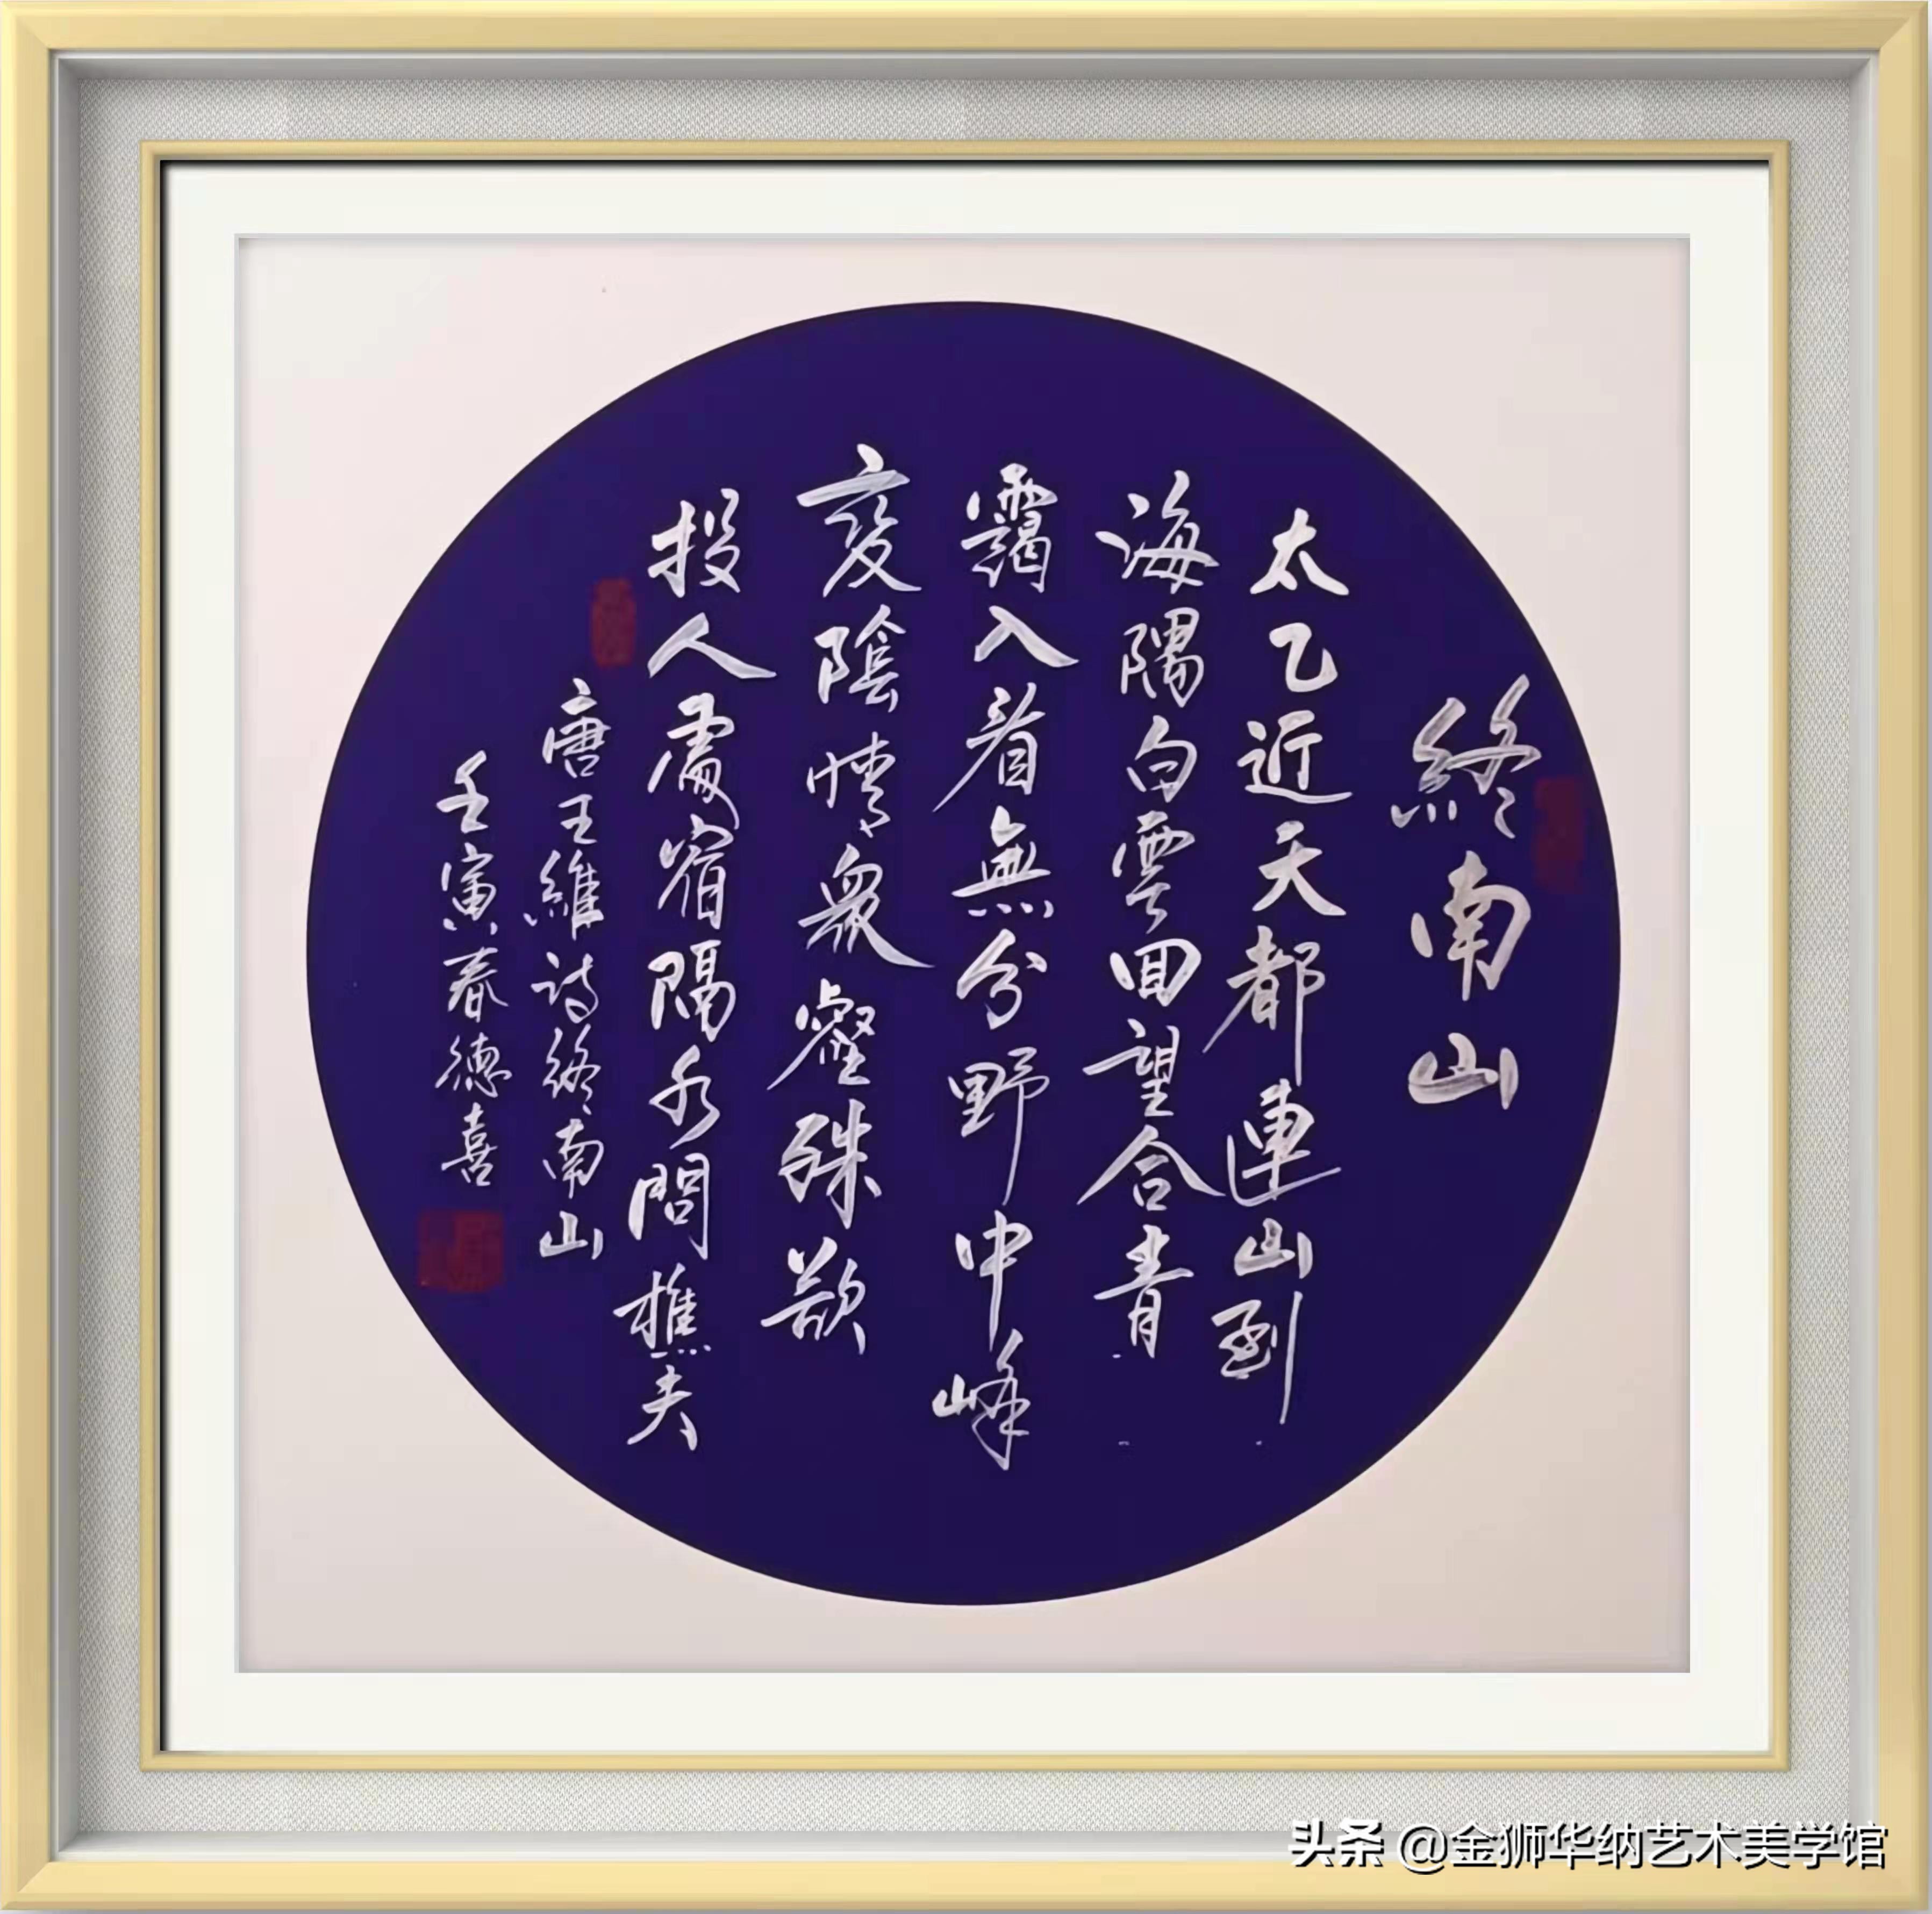 終南山
太乙近天都連山到
海隅白雲回望合青
靄入看無分野中峰
变陰晴衆壑殊欲
投人處宿隔水問樵夫
唐王維詩終南山
壬寅春德喜
头条 @金狮华纳艺术美学馆